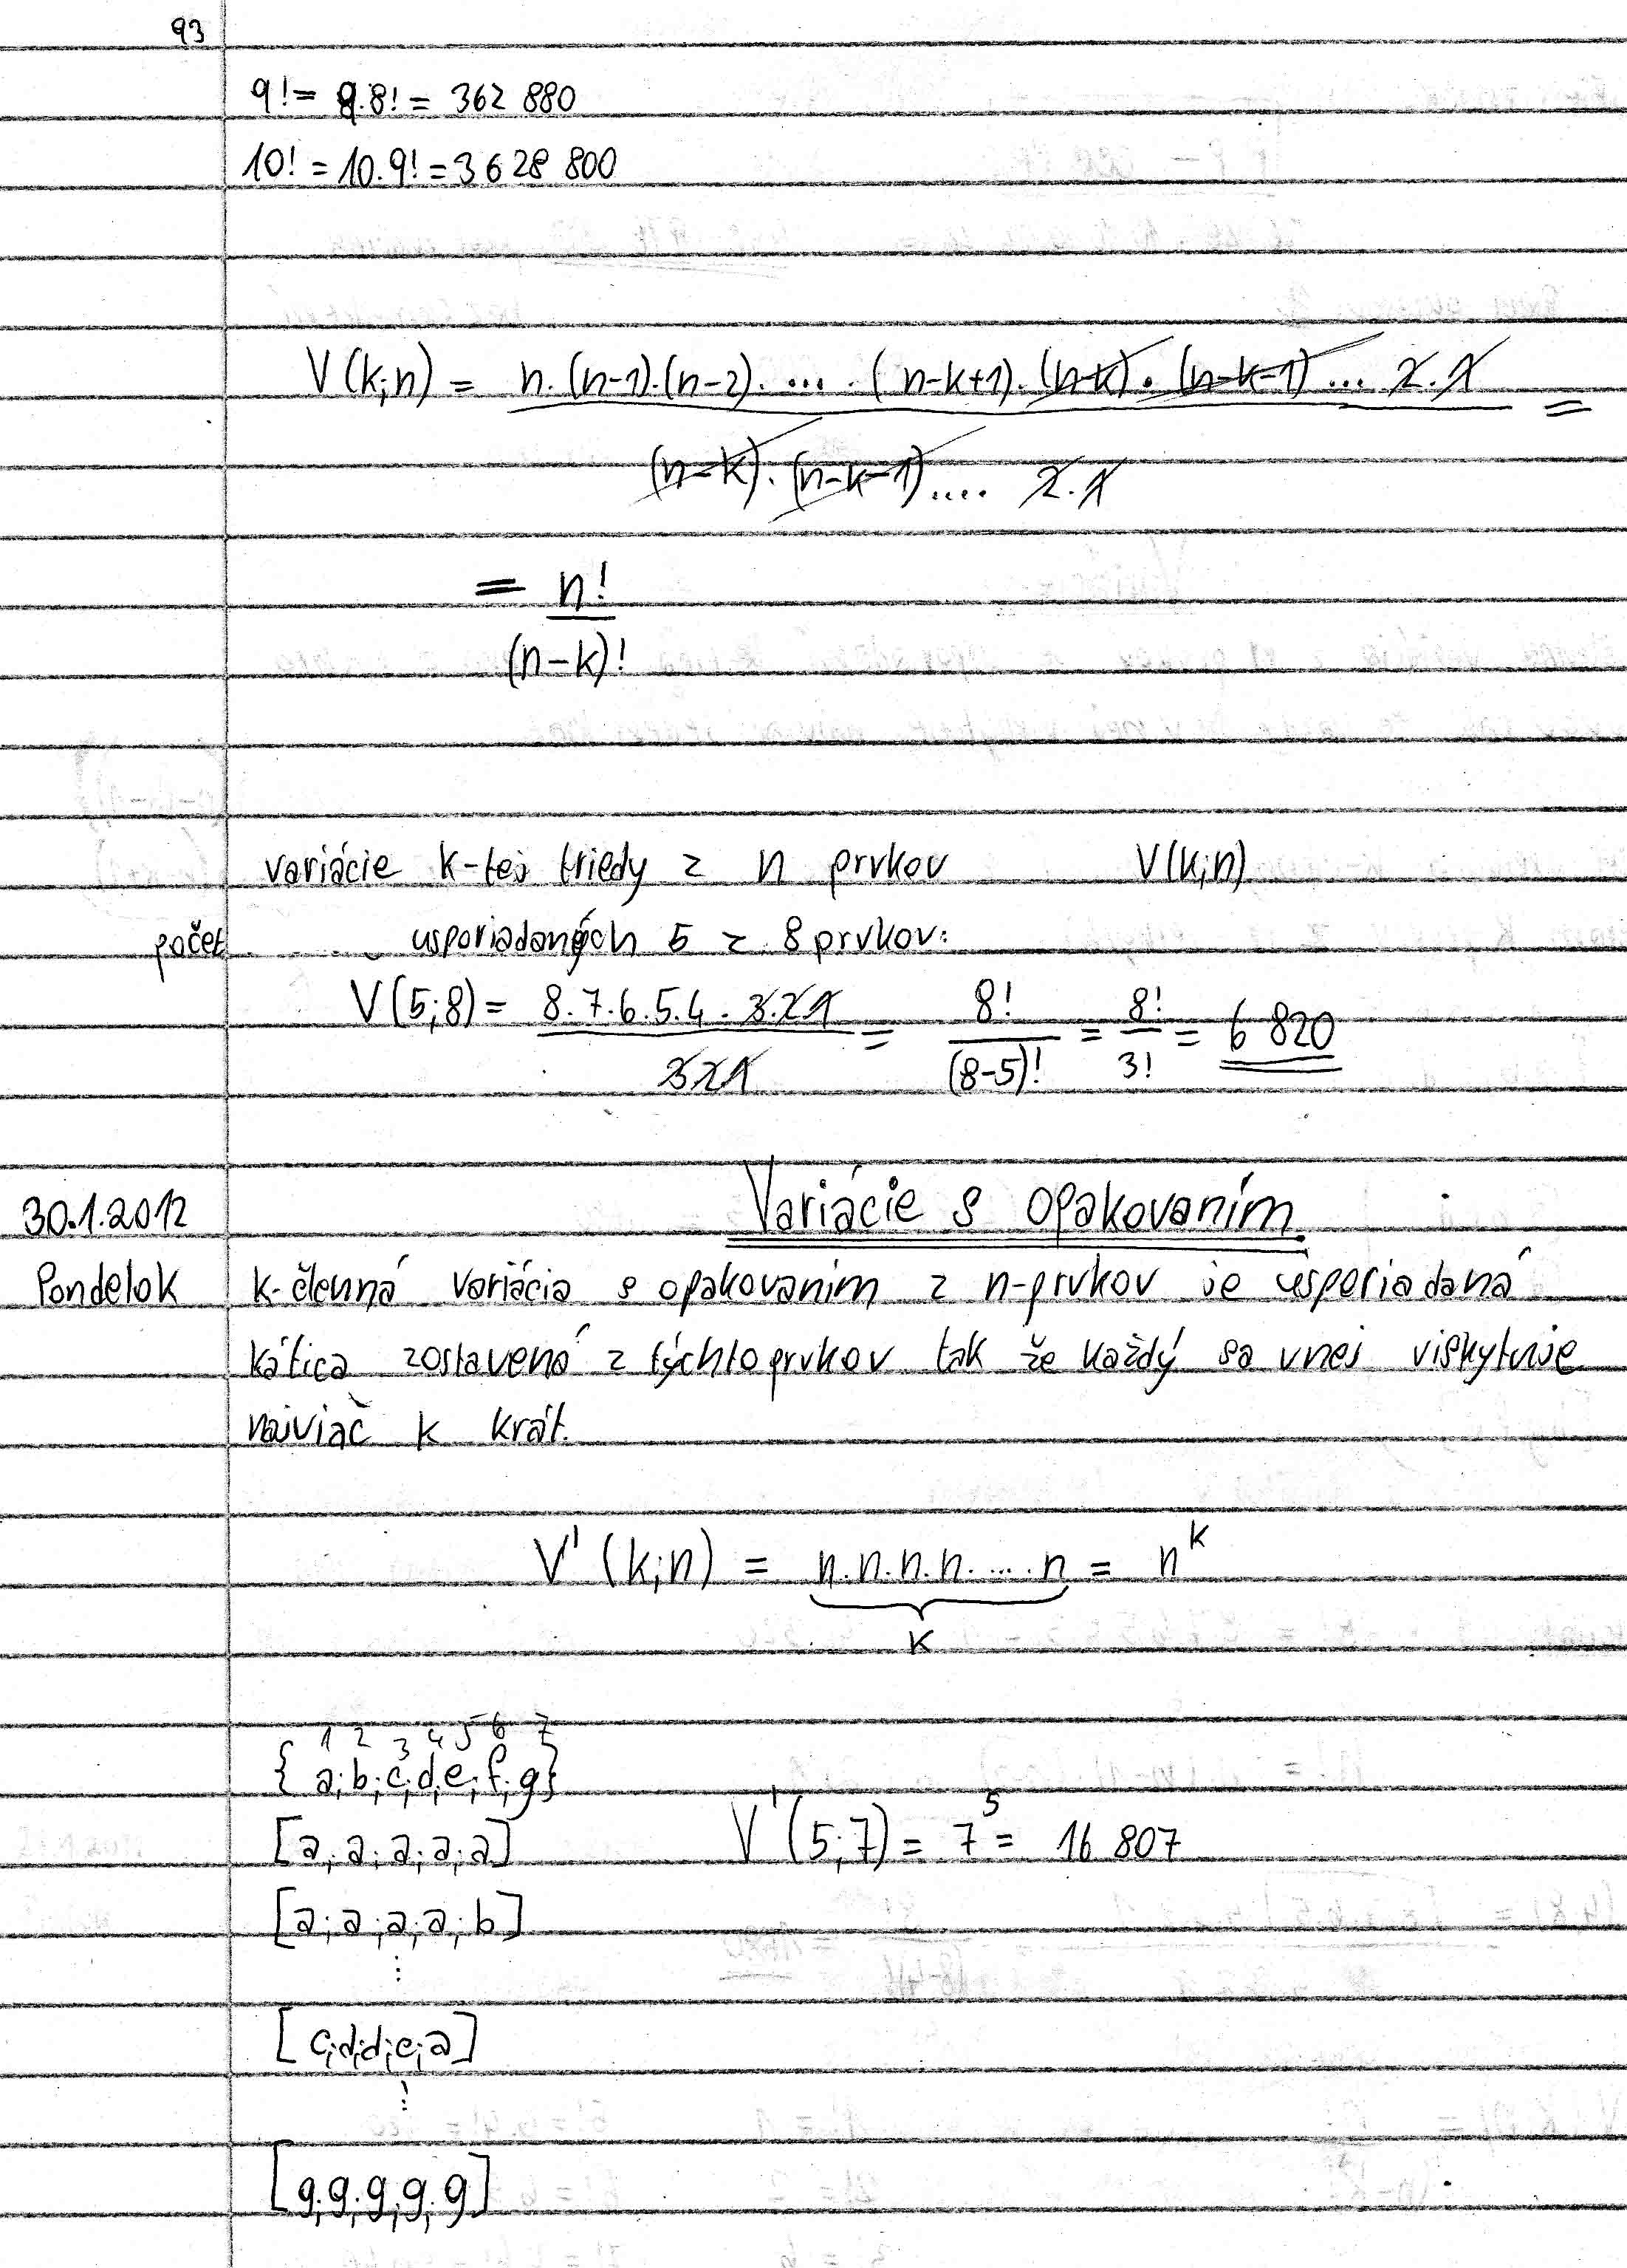 93
9! = 9.8! = 362 880
10! = 10.9! = 3 628 800
V(k;n) = n.(n-1).(n-2). .... .(n-k+1).(n-k).(n-k-1) ... 2.1 =
(n-k).(n-k-1).... 2.1
= n!
(n-k)!
variácie k-tej triedy z n prvkov V(k;n)
počet usporiadaných 5 z 8 prvkov:
V(5;8) = 8.7.6.5.4.3.2.1 = 8! = 8! = 6 820
3.2.1 (8-5)! 3!
30.1.2012 Variácie s opakovaním
Pondelok k-členná variácia s opakovaním z n-prvkov je usporiadaná
kática zostavená z týchto prvkov tak že každý sa vnej viskytuje
najviac k krát.
V'(k;n) = n.n.n.n. ... .n = n^k
k
1 2 3 4 5 6 7
{a;b;c;d;e;f;g}
[a;a;a;a;a] V'(5;7) = 7^5 = 16 807
[a;a;a;a;b]
⋮
[c;d;d;e;a]
⋮
[g;g;g;g;g]